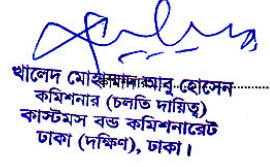 খালেদ মোহাম্মদ আবু হোসেন
কমিশনার (চলতি দায়িত্ব)
কাস্টমস বন্ড কমিশনারেট
ঢাকা (দক্ষিণ), ঢাকা।